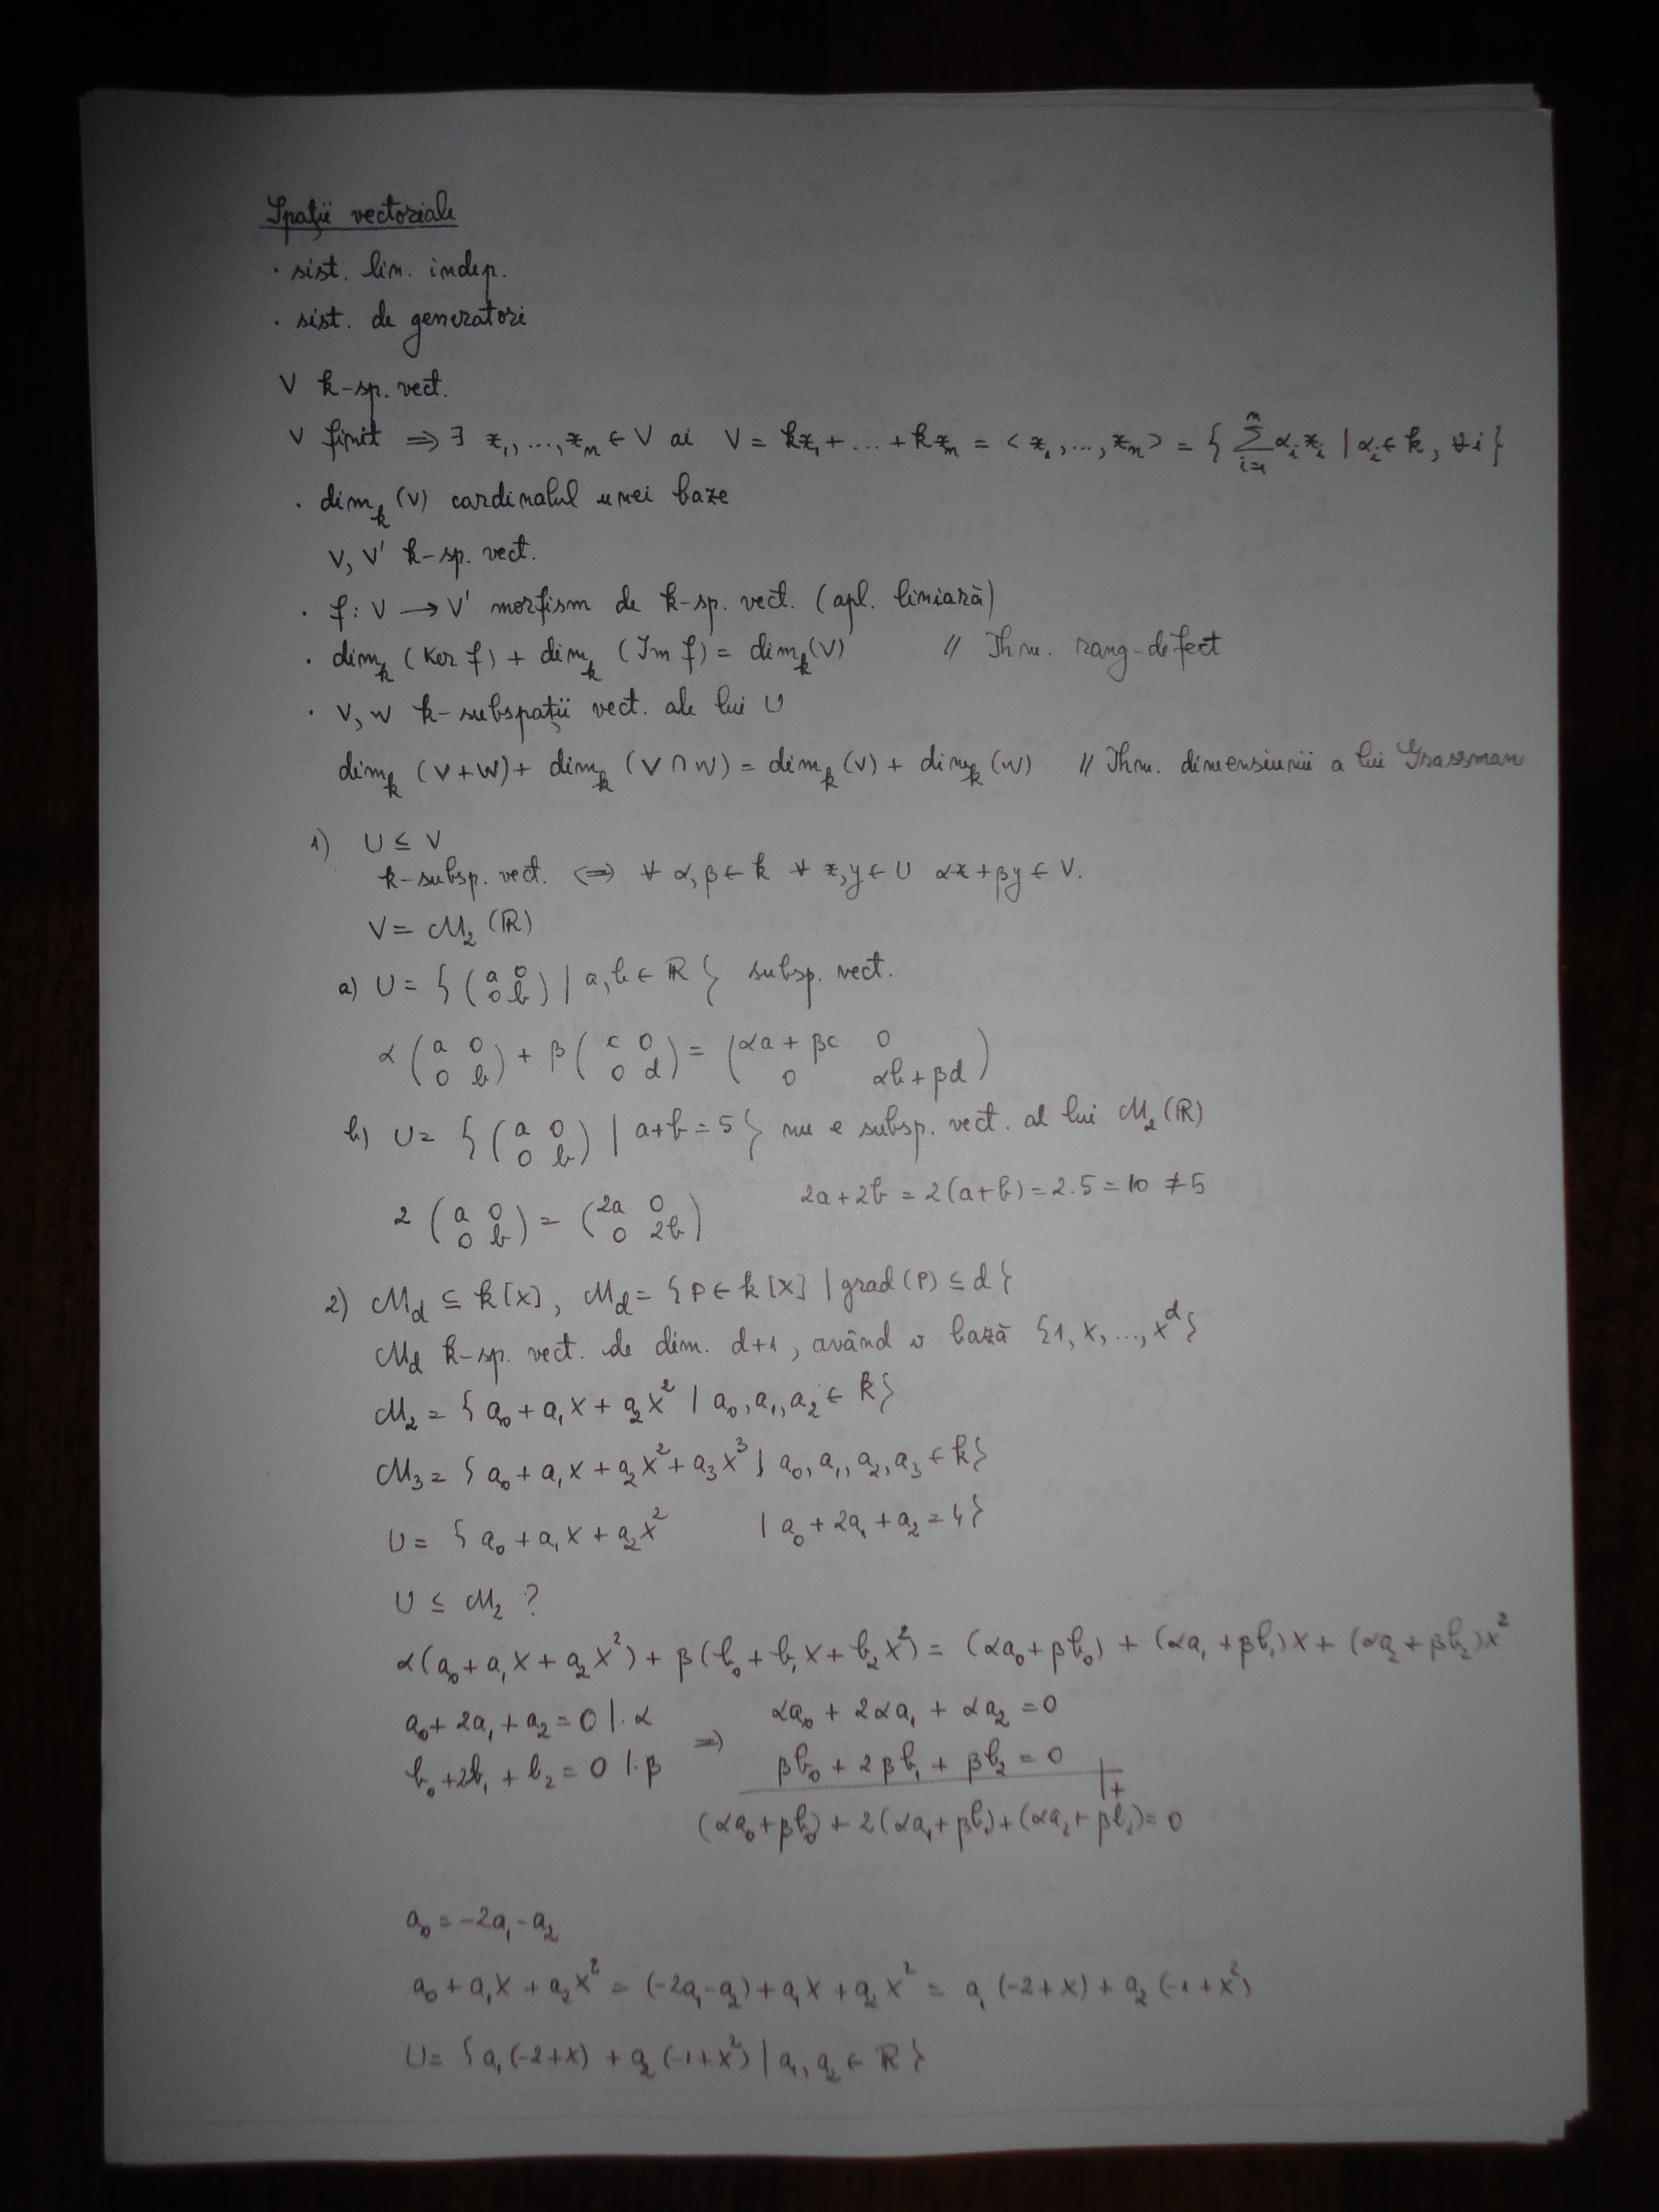 Spații vectoriale
· sist. lin. indep.
· sist. de generatori
V k-sp. vect.
V finit ⟹ ∃ x₁, ..., xₙ ∈ V aî V = kx₁ + ... + kxₙ = <x₁, ..., xₙ> = { ∑ᵢ₌₁ⁿ αᵢxᵢ | αᵢ ∈ k, ∀i }
· dimₖ(V) cardinalul unei baze
V, V' k-sp. vect.
· f: V → V' morfism de k-sp. vect. (apl. liniară)
· dimₖ(Ker f) + dimₖ(Im f) = dimₖ(V) // Thm. rang-defect
· V, W k-subspații vect. ale lui U
dimₖ(V+W) + dimₖ(V∩W) = dimₖ(V) + dimₖ(W) // Thm. dimensiunii a lui Grassman
1) U ≤ V
k-subsp. vect. ⟺ ∀ α, β ∈ k ∀ x, y ∈ U αx + βy ∈ V.
V = M₂(ℝ)
a) U = { (a 0 / 0 b) | a, b ∈ ℝ } subsp. vect.
α (a 0 / 0 b) + β (c 0 / 0 d) = (αa + βc 0 / 0 αb + βd)
b) U = { (a 0 / 0 b) | a+b = 5 } nu e subsp. vect. al lui M₂(ℝ)
2 (a 0 / 0 b) = (2a 0 / 0 2b) 2a + 2b = 2(a+b) = 2·5 = 10 ≠ 5
2) M_d ⊆ k[X], M_d = {P ∈ k[X] | grad(P) ≤ d}
M_d k-sp. vect. de dim. d+1, având o bază {1, X, ..., X^d}
M₂ = { a₀ + a₁X + a₂X² | a₀, a₁, a₂ ∈ k}
M₃ = { a₀ + a₁X + a₂X² + a₃X³ | a₀, a₁, a₂, a₃ ∈ k}
U = { a₀ + a₁X + a₂X² | a₀ + 2a₁ + a₂ = 4}
U ≤ M₂ ?
α(a₀ + a₁X + a₂X²) + β(b₀ + b₁X + b₂X²) = (αa₀ + βb₀) + (αa₁ + βb₁)X + (αa₂ + βb₂)X²
a₀ + 2a₁ + a₂ = 0 |·α ⟹ αa₀ + 2αa₁ + αa₂ = 0
b₀ + 2b₁ + b₂ = 0 |·β βb₀ + 2βb₁ + βb₂ = 0 |+
(αa₀ + βb₀) + 2(αa₁ + βb₁) + (αa₂ + βb₂) = 0
a₀ = -2a₁ - a₂
a₀ + a₁X + a₂X² = (-2a₁ - a₂) + a₁X + a₂X² = a₁(-2+X) + a₂(-1+X²)
U = {a₁(-2+X) + a₂(-1+X²) | a₁, a₂ ∈ ℝ}